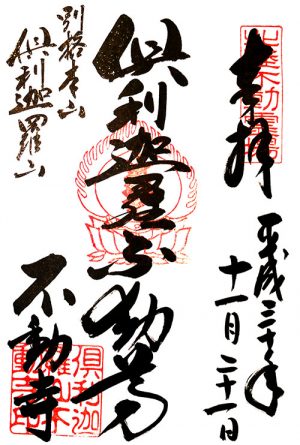 奉拝
平成三十年
十一月二十一日
倶利迦羅不動尊
別格本山
倶利迦羅山
不動寺
倶利迦
羅山不
動寺印